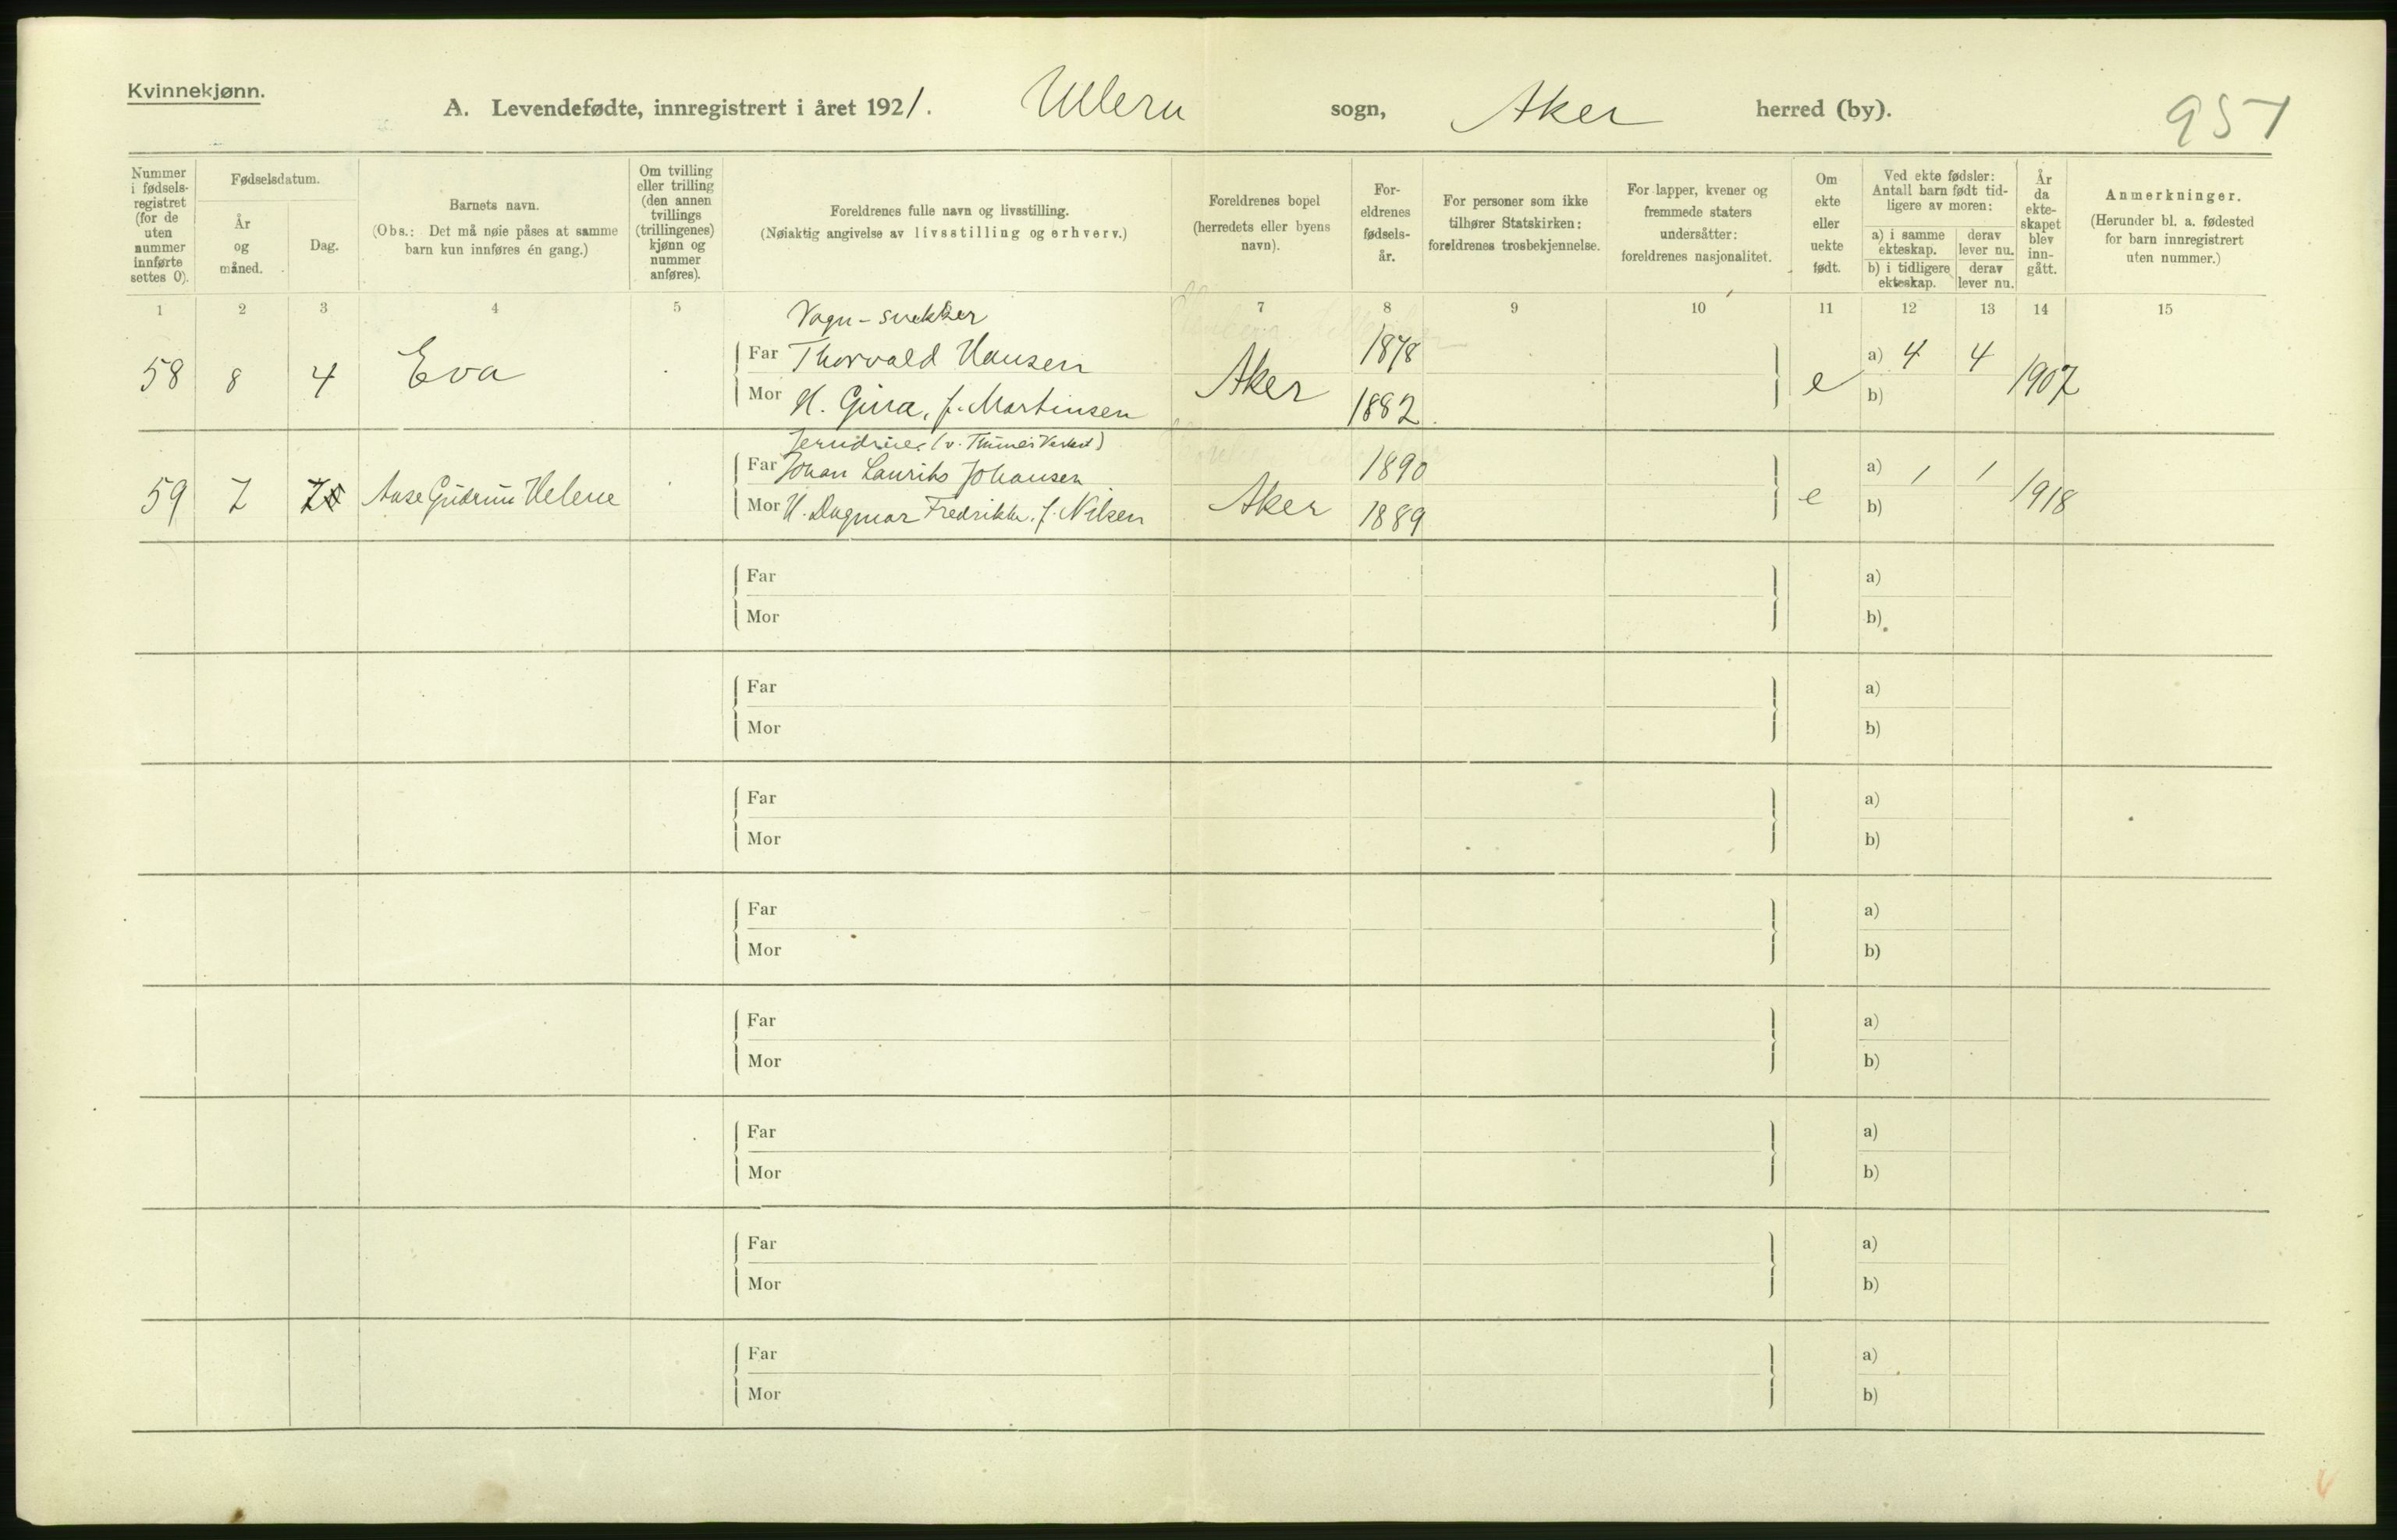 Kvinnekjønn.
A. Levendefødte, innregistrert i året 1921. Ullern sogn, Aker herred (by). 951
Nummer i fødselsregistret (for de uten nummer innførte settes 0).
Fødselsdatum.
År og måned.
Dag.
Barnets navn.
(Obs.: Det må nøie påses at samme barn kun innføres én gang.)
Om tvilling eller trilling (den annen tvillings (trillingenes) kjønn og nummer anføres).
Foreldrenes fulle navn og livsstilling.
(Nøiaktig angivelse av livsstilling og erhverv.)
Foreldrenes bopel (herredets eller byens navn).
Foreldrenes fødselsår.
For personer som ikke tilhører Statskirken: foreldrenes trosbekjennelse.
For lapper, kvener og fremmede staters undersåtter: foreldrenes nasjonalitet.
Om ekte eller uekte født.
Ved ekte fødsler: Antall barn født tidligere av moren:
a) i samme ekteskap.
derav lever nu.
b) i tidligere ekteskap.
derav lever nu.
År da ekteskapet blev inngått.
Anmerkninger.
(Herunder bl. a. fødested for barn innregistrert uten nummer.)
1 2 3 4 5 7 8 9 10 11 12 13 14 15
Vogn-snekker
58 8 4 Eva Far Thorvald Hansen Aker 1878 e a) 4 4 1907
Mor H. Gina, f. Martinsen 1882 b)
59 7 7 Aase Gudrun Helene Far Johan Laurits Johansen Aker 1890 e a) 1 1 1918
Mor H. Dagmar Fredrikke, f. Nilsen 1889 b)
Far a)
Mor b)
Far a)
Mor b)
Far a)
Mor b)
Far a)
Mor b)
Far a)
Mor b)
Far a)
Mor b)
Far a)
Mor b)
Far a)
Mor b)